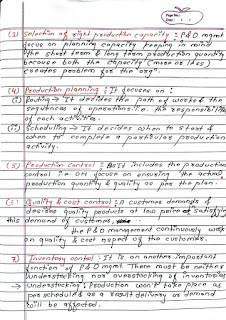 Page No.:
(3) Selection of right production capacity : P&O mgmt
focus on planning capacity keeping in mind
the short term & long term production quantity
because both the capacity (more or less)
creates problem for the "orgn".
(4) Production planning : It focuses on :
(i) Routing → It decides the path of work & the
sequences of operations i.e. the responsibility
of each activities.
(ii) Scheduling → It decides when to start &
when to complete a particular production
activity.
(5) Production control : It includes the production
control i.e. on focus on ensuring the actual
production quantity & quality as per the plan.
Quality & cost control : A customer demands of
desire quality products at low price & satisfying
this demand of customers,
the P&O management continuously work
on quality & cost aspect of the customer.
7) Inventory control : It is an another important
function of P&O mgmt. There must be neither
understocking nor overstocking of inventories
→ Understocking : Production won't take place as
per schedule & as a result delivery or demand
will be affected.